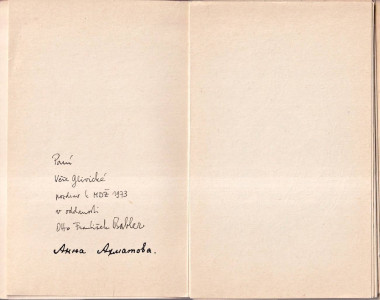 Paní
Věře Glivické
pozdrav k MDŽ 1973
v oddanosti
Otto František Babler
Анна Ахматова.